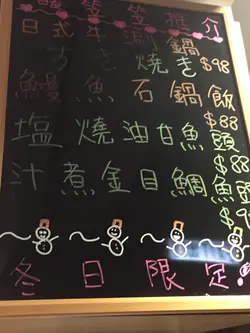 笠笠推介
日式牛涮鍋
すき燒き $98
鰻魚石鍋飯 $88
塩燒油甘魚頭 $88
汁煮金目鯛魚頭 $88
冬日限定!